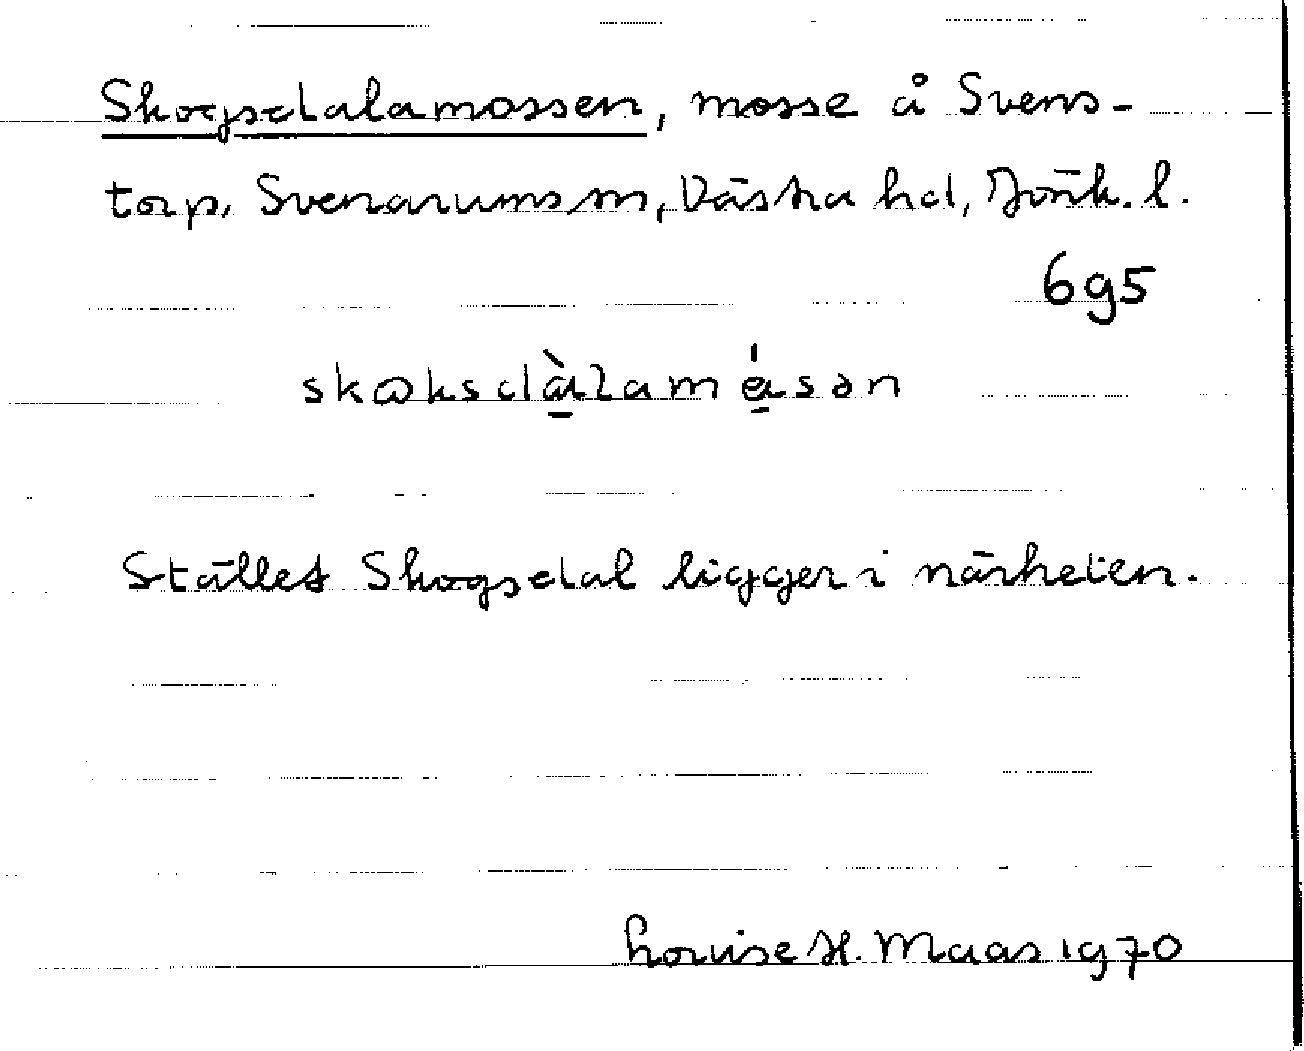 Skogsdalamossen, mosse å Svens-
torp, Svenarums sn, Västra hd, Jönk. l.
6g5
skɷksdàlamésən
Stället Skogsdal ligger i närheten.
Louise H. Maas 1970